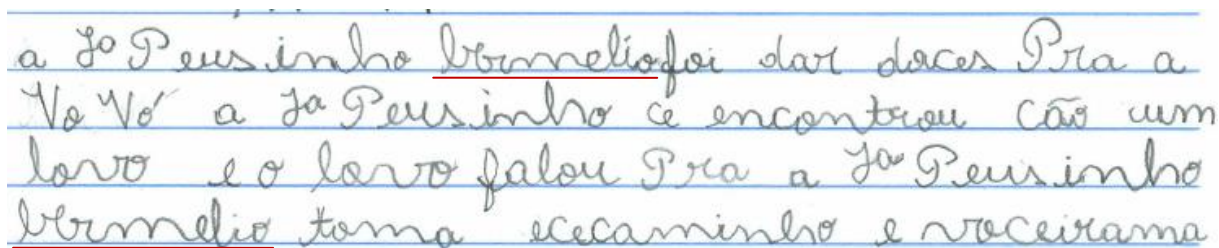 a Ja Peusinho bermeliofoi dar doces Pra a
Vo Vó a Ja Peusinho ce encontrou cão um
lovo e o lovo falou Pra a Ja Peusinho
bermelio toma ececaminho e voceirama